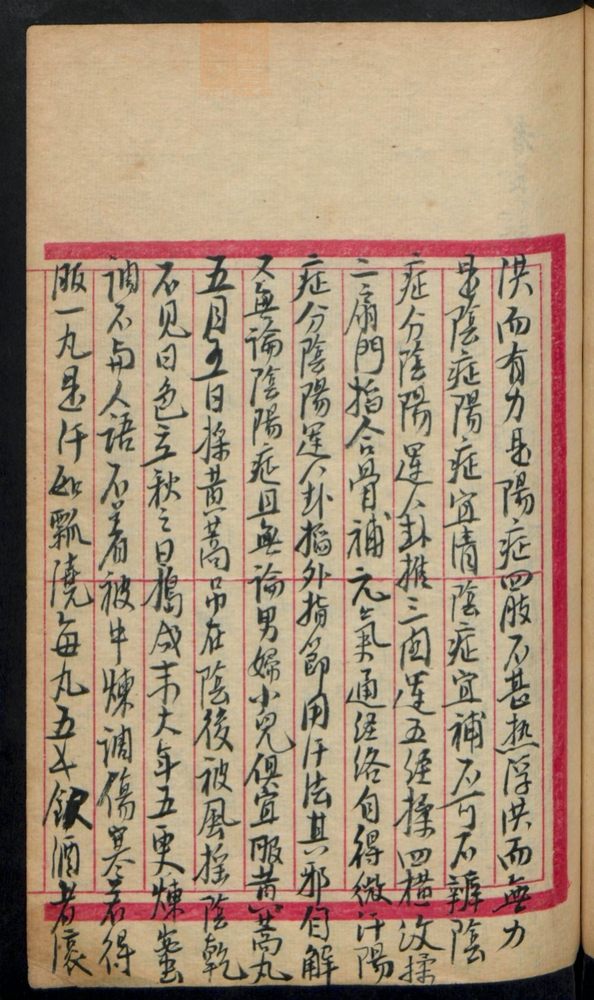 洪而有力是陽症四肢不甚热浮洪而無力
是陰症陽症宜清陰症宜補不可不辨陰
症分陰陽運八卦推三関運五経揉四横汶揉
二扇門掐合骨補元氣通经络自得微汗陽
症分陰陽運八卦掐外指節用汗法其邪自解
又無論陰陽症且無論男婦小兒俱宜服黄蒿丸
五月五日採黄蒿吊在陰後被風揺陰乾
不見日色立秋之日搗成末大年五更煉蜜
調不与人語不着被牛煉調傷寒若得
服一丸是汗如瓢澆每丸五文飲酒者